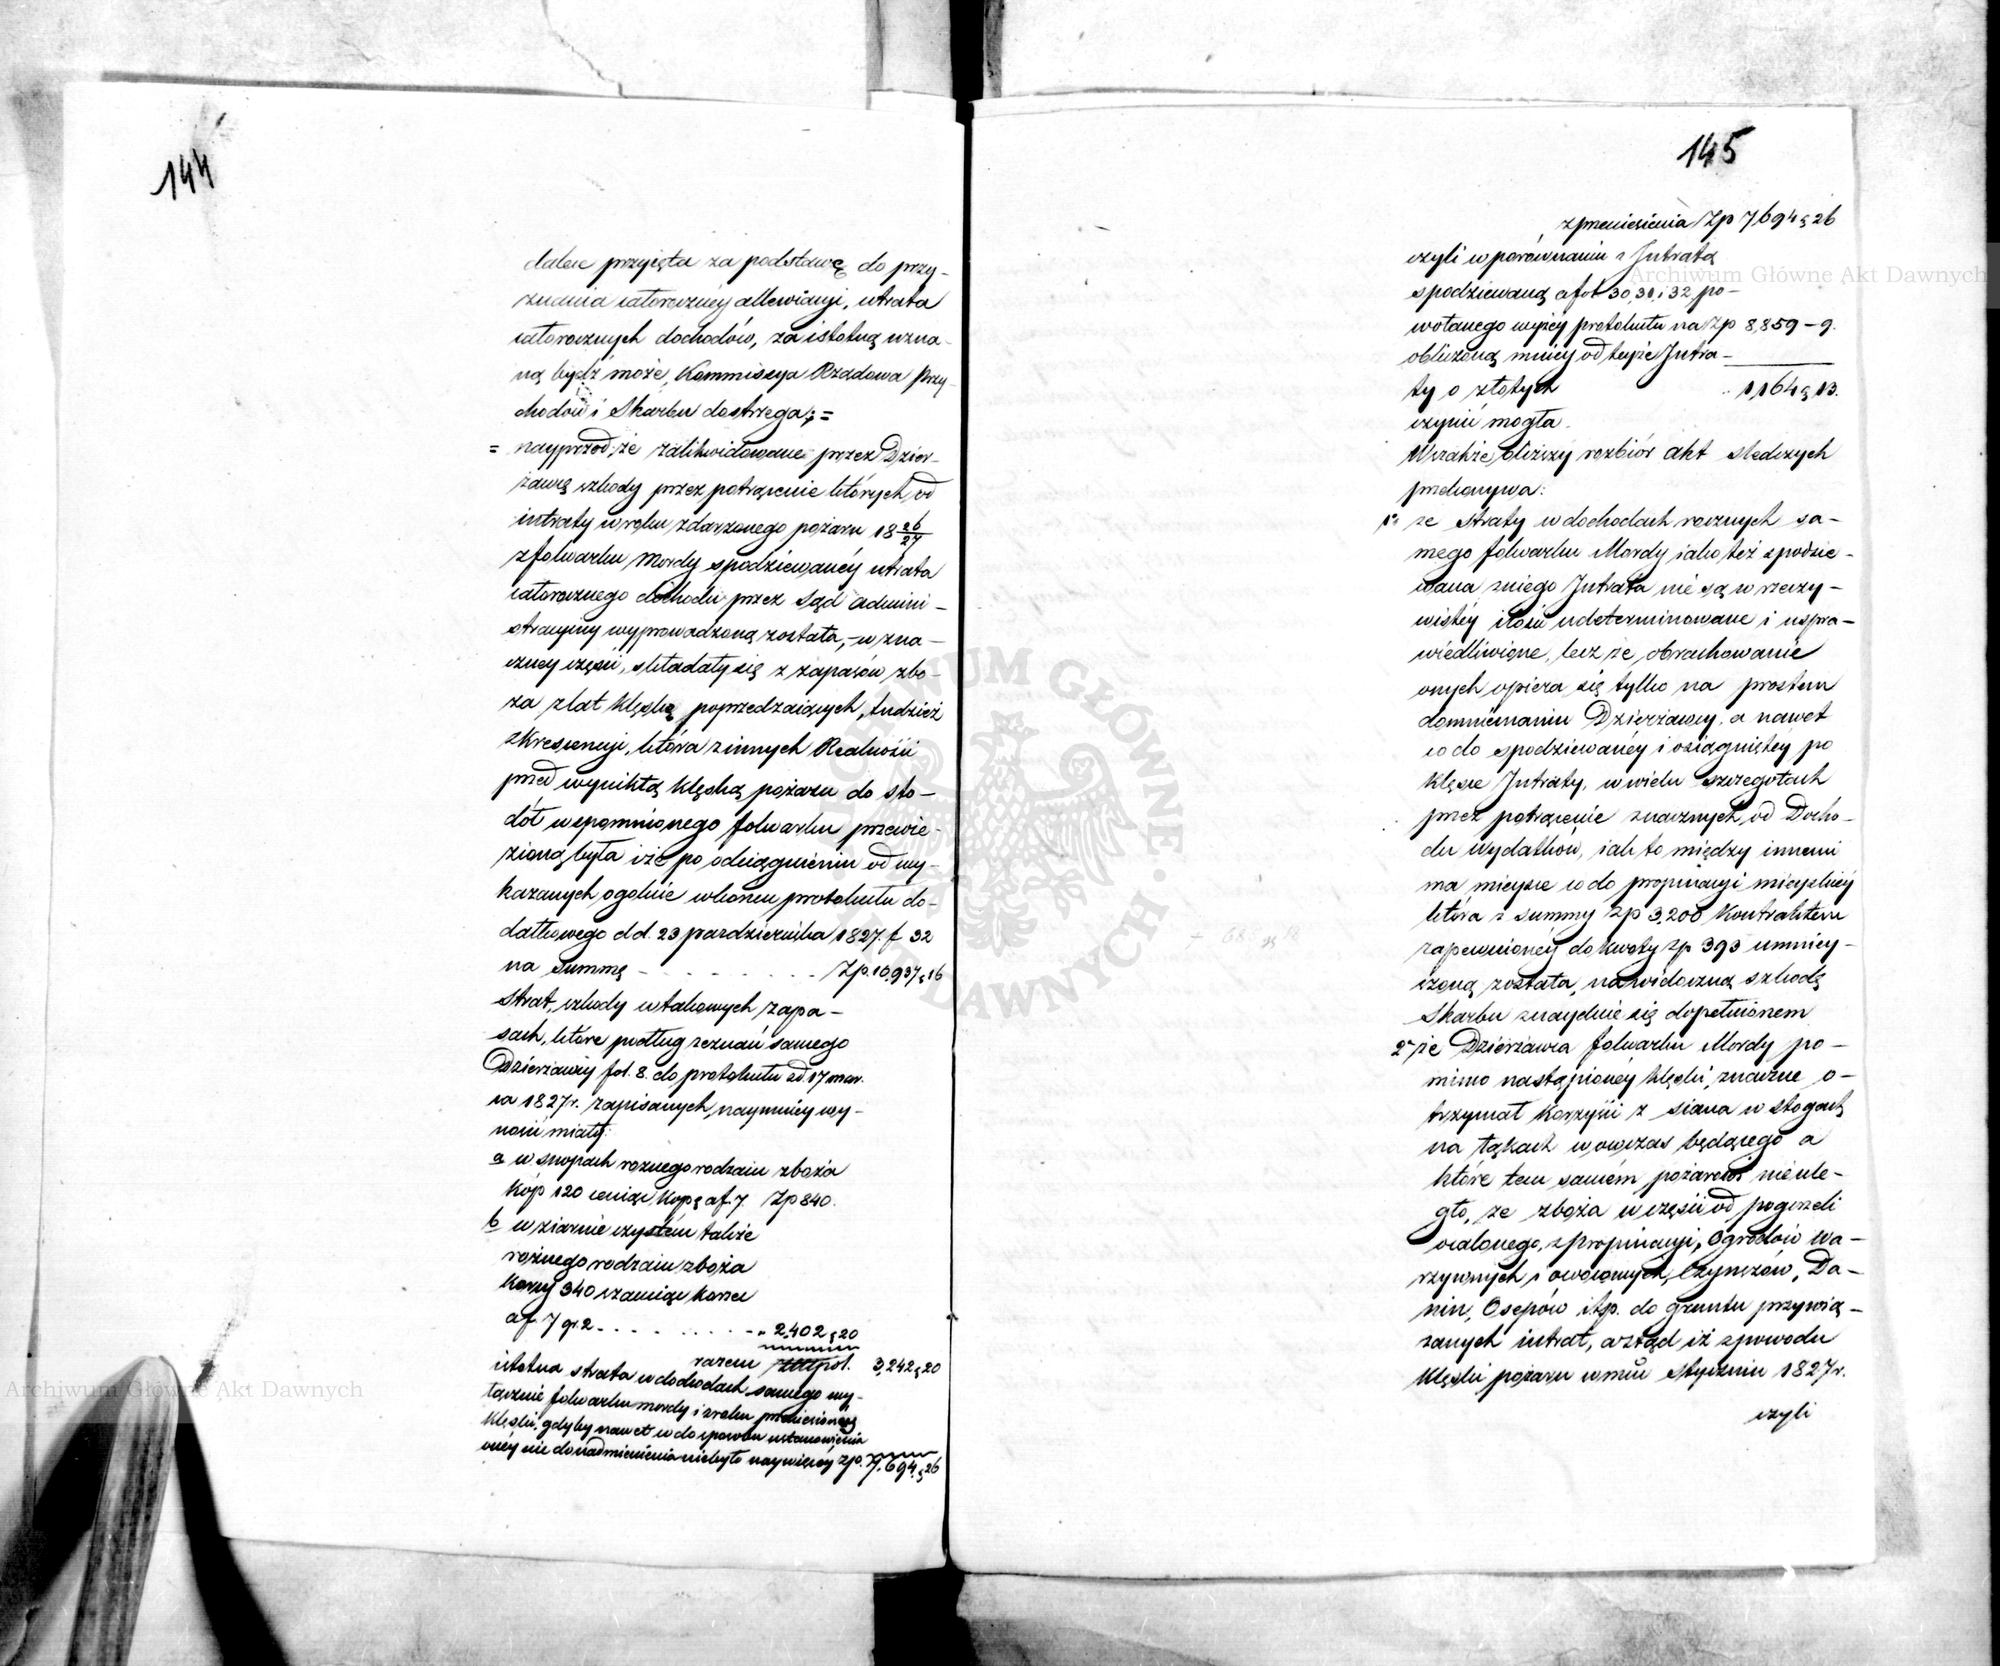 144
dalece przyięta za podstawę do przy-
znania całorocznéy allewiacyi, utrata
całorocznych dochodów, za istotną uzna-
ną bydź może, Kommissya Rządowa Przy-
chodów i Skarbu dostrzega; =
= nayprzod; że zalikwidowane przez Dzier-
żawcę szkody przez potrącenie których od
intraty w roku zdarzonego pożaru 18 26/27
z folwarku Mordy spodziewanéy utrata
całorocznego dochodu przez Sąd admini-
stracyiny wyprowadzoną została, – w zna-
czney części, składały się z zapasów zbo-
ża z lat klęskę poprzedzaiących, tudzież
z krescencyi, która z innych Realności
przed wynikłą klęską pożaru do sto-
dół wspomnionego folwarku przewie-
zioną była i że po odciągnieniu od wy-
kazanych ogolnie w końcu protokułu do-
datkowego d.d. 23 pazdziernika 1827. f 32
na summę - - - - - - - Zp. 10,937 g 16
strat, szkody w takowych zapa-
sach, które podług zeznań samego
Dzierżawcy fol. 8. do protokułu zd. 17 mar-
ca 1827 r. zapisanych, naymniey wy-
nosić miały:
a w snopach roznego rodzaiu zboża
kóp 120 ceniąc kopę a f. 7. Zp 840.
b w ziarnie czystém także
rożnego rodzaiu zboża
korcy 340 szacuiąc korzec
a f. 7 gr. 2 - - - - - - - „ 2,402 g 20
razem pol. 3,242 g 20
istotna strata w dochodach samego wy-
łącznie folwarku mordy i z roku poniesionéy
klęski, gdyby nawet co do sposobu ustanowienia
onéy nic do nadmienienia niebyło naywięcéy Zp. 7,694. g 26
145
z przeniesienia Zp 7694 g 26
czyli w porównaniu z Intratą
spodziewaną a fol 30, 31, i 32 po-
wołanego wyżéy protokułu na Zp 8,859 – 9.
obliczoną mniéy od teyże Intra-
ty o złotych 1164 g 13.
czynić mogła.
Wszakże, bliższy rozbiór akt sledczych
przekonywa:
1o że straty w dochodach rocznych sa-
mego folwarku Mordy iako też spodzie-
wana z niego Intrata nie są w rzeczy-
wistéy ilości udeterminowane i uspra-
wiedliwione, lecz że, obrachowanie
onych opiera się tylko na prostem
domniemaniu Dzierżawcy, a nawet
co do spodziewanéy i osiągniętéy po
klęsce Intraty, w wielu szczegołach
przez potrącenie znacznych od Docho-
du wydatków, iak to między innemi
ma mieysce co do propinacyi mieyskiéy
która z summy Zp 3,200 Kontraktem
zapewnionéy do kwoty Zp 393 umniéy-
szoną została, na widoczną szkodę
Skarbu znayduie się dopełnionem
2o że Dzierżawca folwarku Mordy po-
mimo nastąpionéy klęski, znaczne o-
trzymał korzyści z siana w stogach
na łąkach wowczas będącego a
które tem samém pożarowi nie ule-
gło, ze zboża w części od pogorzeli
ocalonego, z propinacyi, Ogrodów wa-
rzywnych i owocowych, Czynszów, Da-
nin, Osepów itp. do gruntu przywią-
zanych intrat, a ztąd iż z powodu
klęski pożaru w mcu styczniu 1827 r.
czyli
Archiwum Główne Akt Dawnych
Archiwum Główne Akt Dawnych
ARCHIWUM GŁÓWNE AKT DAWNYCH